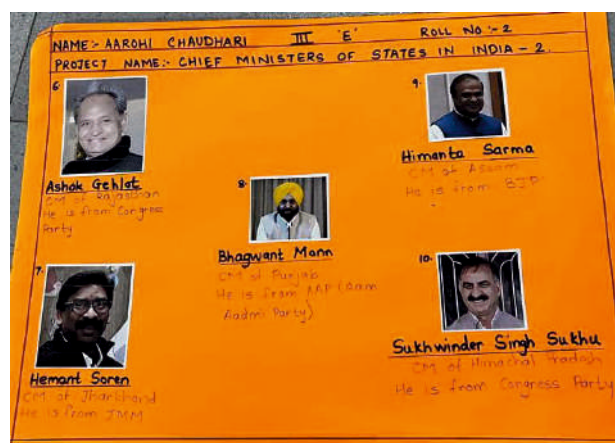 NAME:- AAROHI CHAUDHARI III 'E' ROLL NO:-2
PROJECT NAME:- CHIEF MINISTERS OF STATES IN INDIA - 2.
6.
Ashok Gehlot
CM of Rajasthan
He is from Congress
Party
7.
Hemant Soren
CM of Jharkhand
He is from JMM
8.
Bhagwant Mann
CM of Punjab
He is from AAP (Aam
Aadmi Party)
9.
Himanta Sarma
CM of Assam
He is from BJP
10.
Sukhwinder Singh Sukhu
CM of Himachal Pradesh
He is from Congress Party